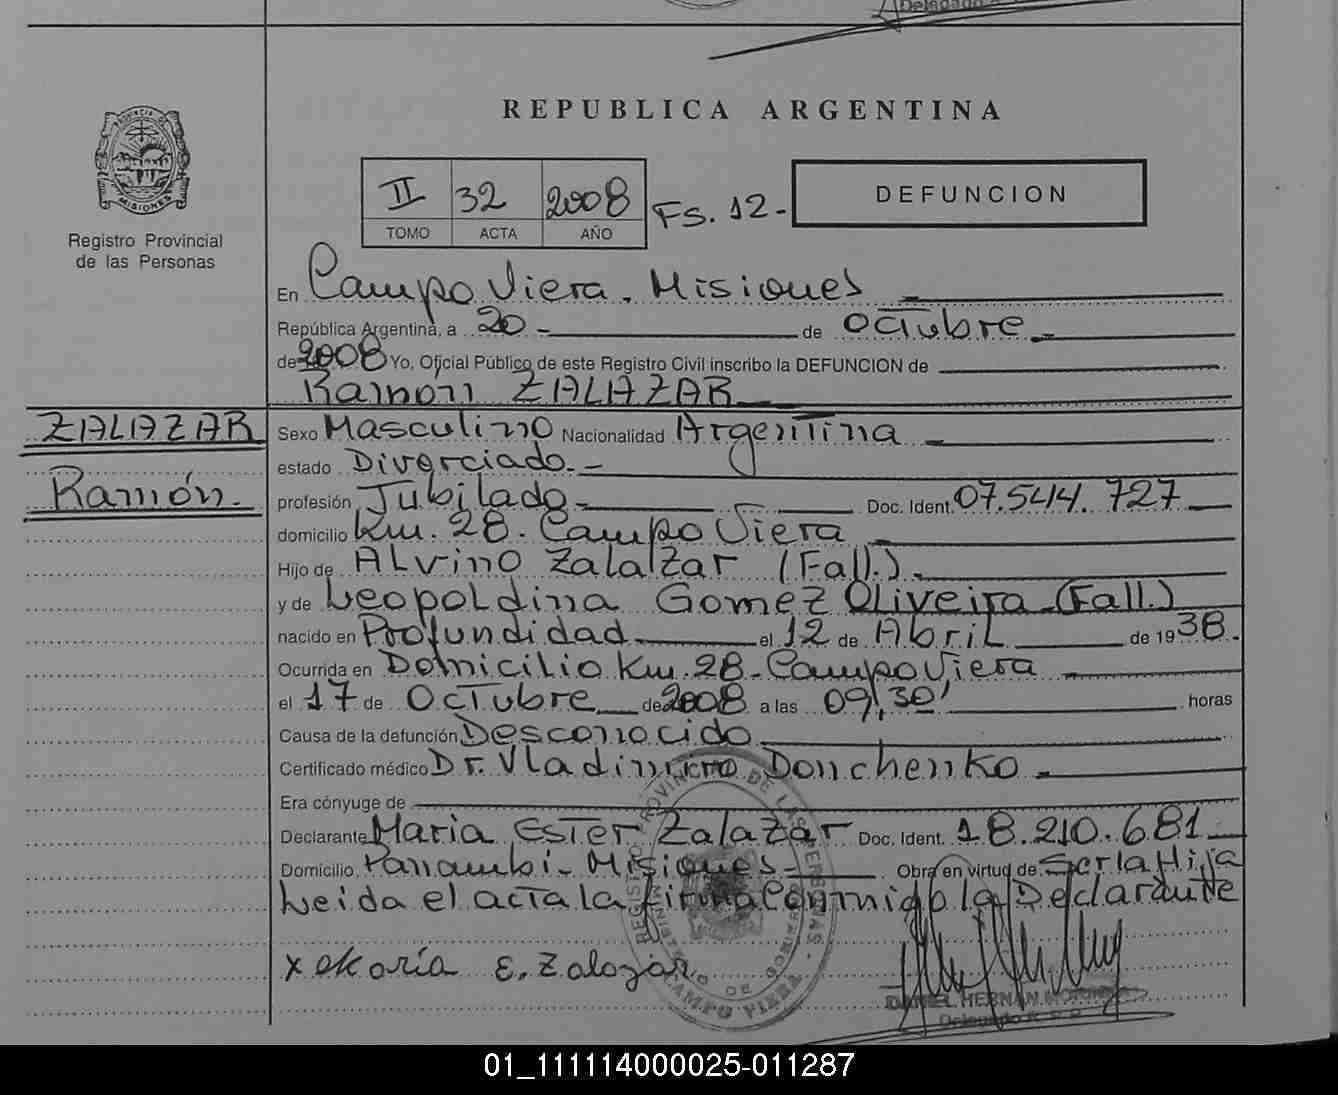 Delegado
REPUBLICA ARGENTINA
PROVINCIA DE
MISIONES
Registro Provincial
de las Personas
II 32 2008 Fs. 12.-
TOMO ACTA AÑO
DEFUNCION
En Campo Viera. Misiones
República Argentina, a 20 - de Octubre
de 2008 Yo, Oficial Público de este Registro Civil inscribo la DEFUNCION de
Ramón ZALAZAR
ZALAZAR
Ramón.
Sexo Masculino Nacionalidad Argentina
estado Divorciado.-
profesión Jubilado Doc. Ident. 07.544.727
domicilio Km. 28. Campo Viera
Hijo de Alvino Zalazar (Fall.)
y de Leopoldina Gomez Oliveira (Fall.)
nacido en Profundidad el 12 de Abril de 1938.
Ocurrida en Domicilio Km. 28 - Campo Viera
el 17 de Octubre de 2008 a las 09,30' horas
Causa de la defunción Desconocido
Certificado médico Dr. Vladimiro Donchenko
Era cónyuge de
Declarante Maria Ester Zalazar Doc. Ident. 18.210.681
Domicilio Panambi - Misiones Obra en virtud de Ser la Hija
Leida el acta la firma Conmigo la Declarante
x María E. Zalazar
REGISTRO PROVINCIAL DE LAS PERSONAS
MINISTERIO DE GOBIERNO
CAMPO VIERA
DANIEL HERNAN
Delegado R.P.P.
01_111114000025-011287